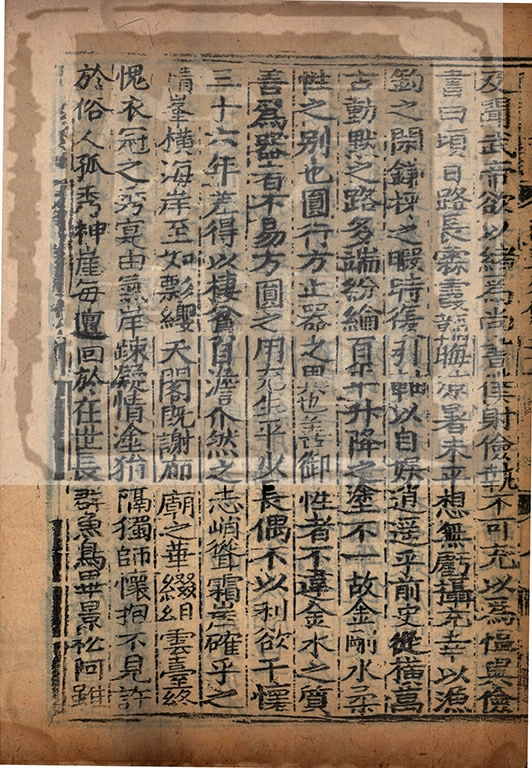 又聞武帝欲以緒為尚書僕射儉執不可充以為慍與儉
書曰頃日路長霖霞韜晦涼暑未平想無虧攝充幸以漁
釣之閑鎌採之暇時復引軸以自娛逍遙乎前史從橫萬
古動默之路多端紛綸百年升降之塗不一故金剛水柔
性之別也圓行方止器之異也善御性者不違金水之質
善爲器者不易方圓之用充生平少長偶不以利欲干懷
三十六年差得以棲貧自澹介然之志峭聳霜崖確乎之
情峯橫海岸至如彯纓天閣既謝廊廟之華綴組雲臺終
愧衣冠之秀寔由氣岸踈凝情塗狷隔獨師懷抱不見許
於俗人孤秀神崖每邅回於在世長群魚鳥畢景松阿雖